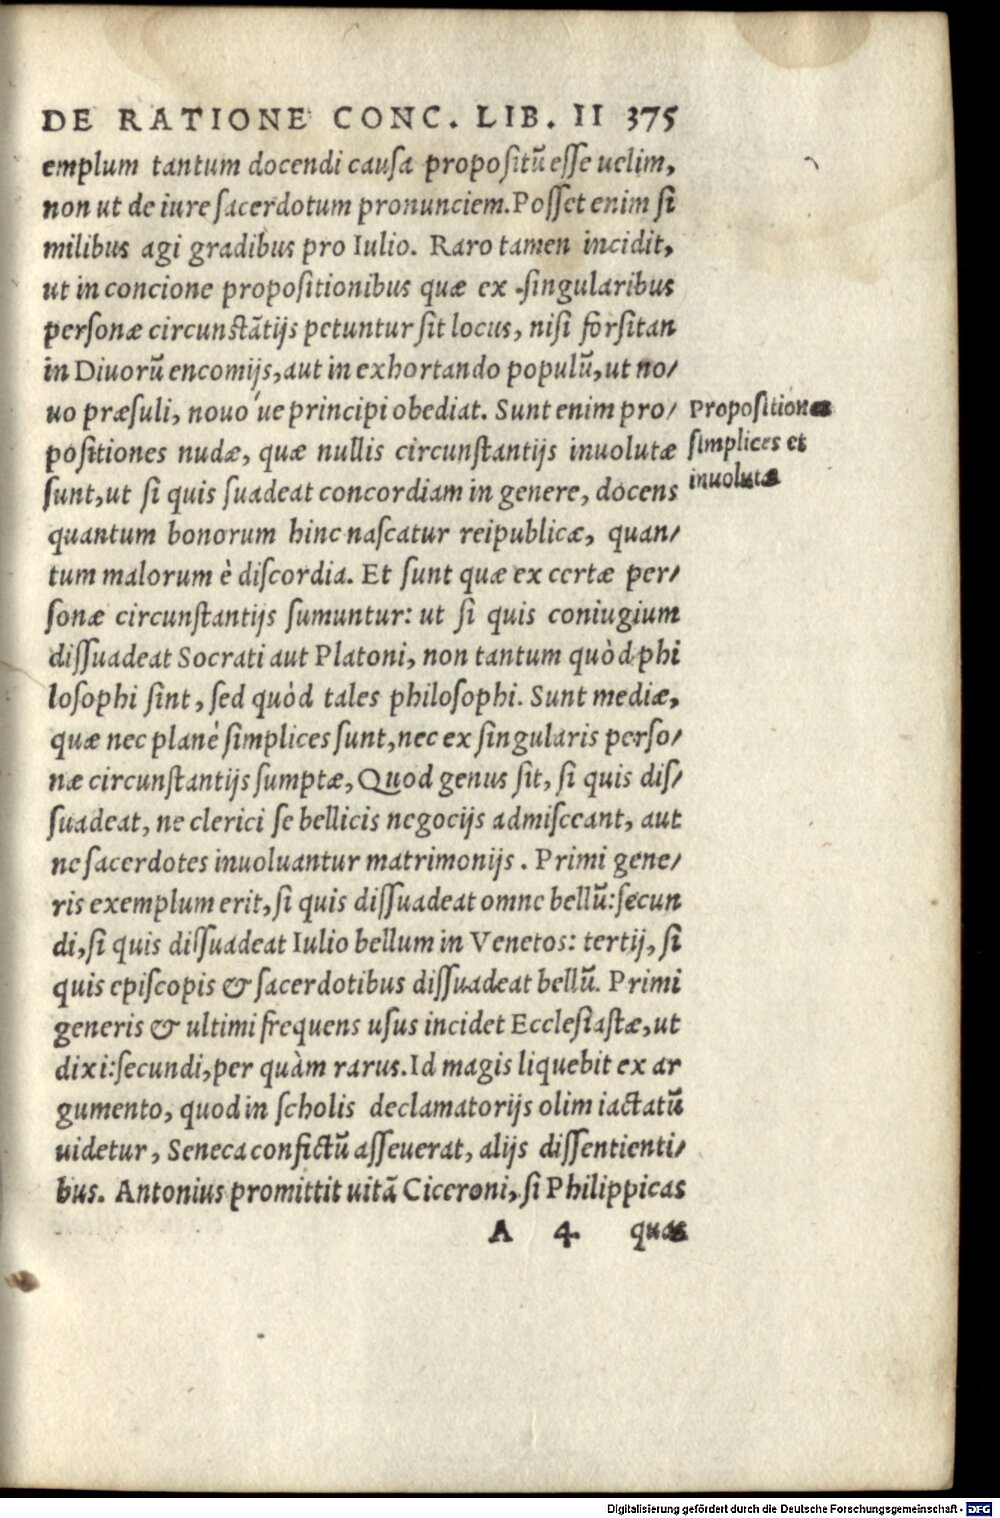 DE RATIONE CONC. LIB. II 375
emplum tantum docendi causa propositũ esse uelim,
non ut de iure sacerdotum pronunciem. Posset enim si
milibus agi gradibus pro Iulio. Raro tamen incidit,
ut in concione propositionibus quæ ex singularibus
personæ circunstãtijs petuntur sit locus, nisi forsitan
in Diuorũ encomijs, aut in exhortando populũ, ut no/
uo præsuli, nouo'ue principi obediat. Sunt enim pro/
positiones nudæ, quæ nullis circunstantijs inuolutæ
sunt, ut si quis suadeat concordiam in genere, docens
quantum bonorum hinc nascatur reipublicæ, quan/
tum malorum è discordia. Et sunt quæ ex certæ per/
sonæ circunstantijs sumuntur: ut si quis coniugium
dissuadeat Socrati aut Platoni, non tantum quòd phi
losophi sint, sed quòd tales philosophi. Sunt mediæ,
quæ nec planè simplices sunt, nec ex singularis perso/
næ circunstantijs sumptæ, Quod genus sit, si quis dis/
suadeat, ne clerici se bellicis negocijs admisceant, aut
ne sacerdotes inuoluantur matrimonijs. Primi gene/
ris exemplum erit, si quis dissuadeat omne bellũ: secun
di, si quis dissuadeat Iulio bellum in Venetos: tertij, si
quis episcopis & sacerdotibus dissuadeat bellũ. Primi
generis & ultimi frequens usus incidet Ecclesiastæ, ut
dixi: secundi, per quàm rarus. Id magis liquebit ex ar
gumento, quod in scholis declamatorijs olim iactatũ
uidetur, Seneca confictũ asseuerat, alijs dissentienti/
bus. Antonius promittit uitã Ciceroni, si Philippicas
A 4 quas
Propositiones
simplices et
inuolutæ
Digitalisierung gefördert durch die Deutsche Forschungsgemeinschaft - DFG